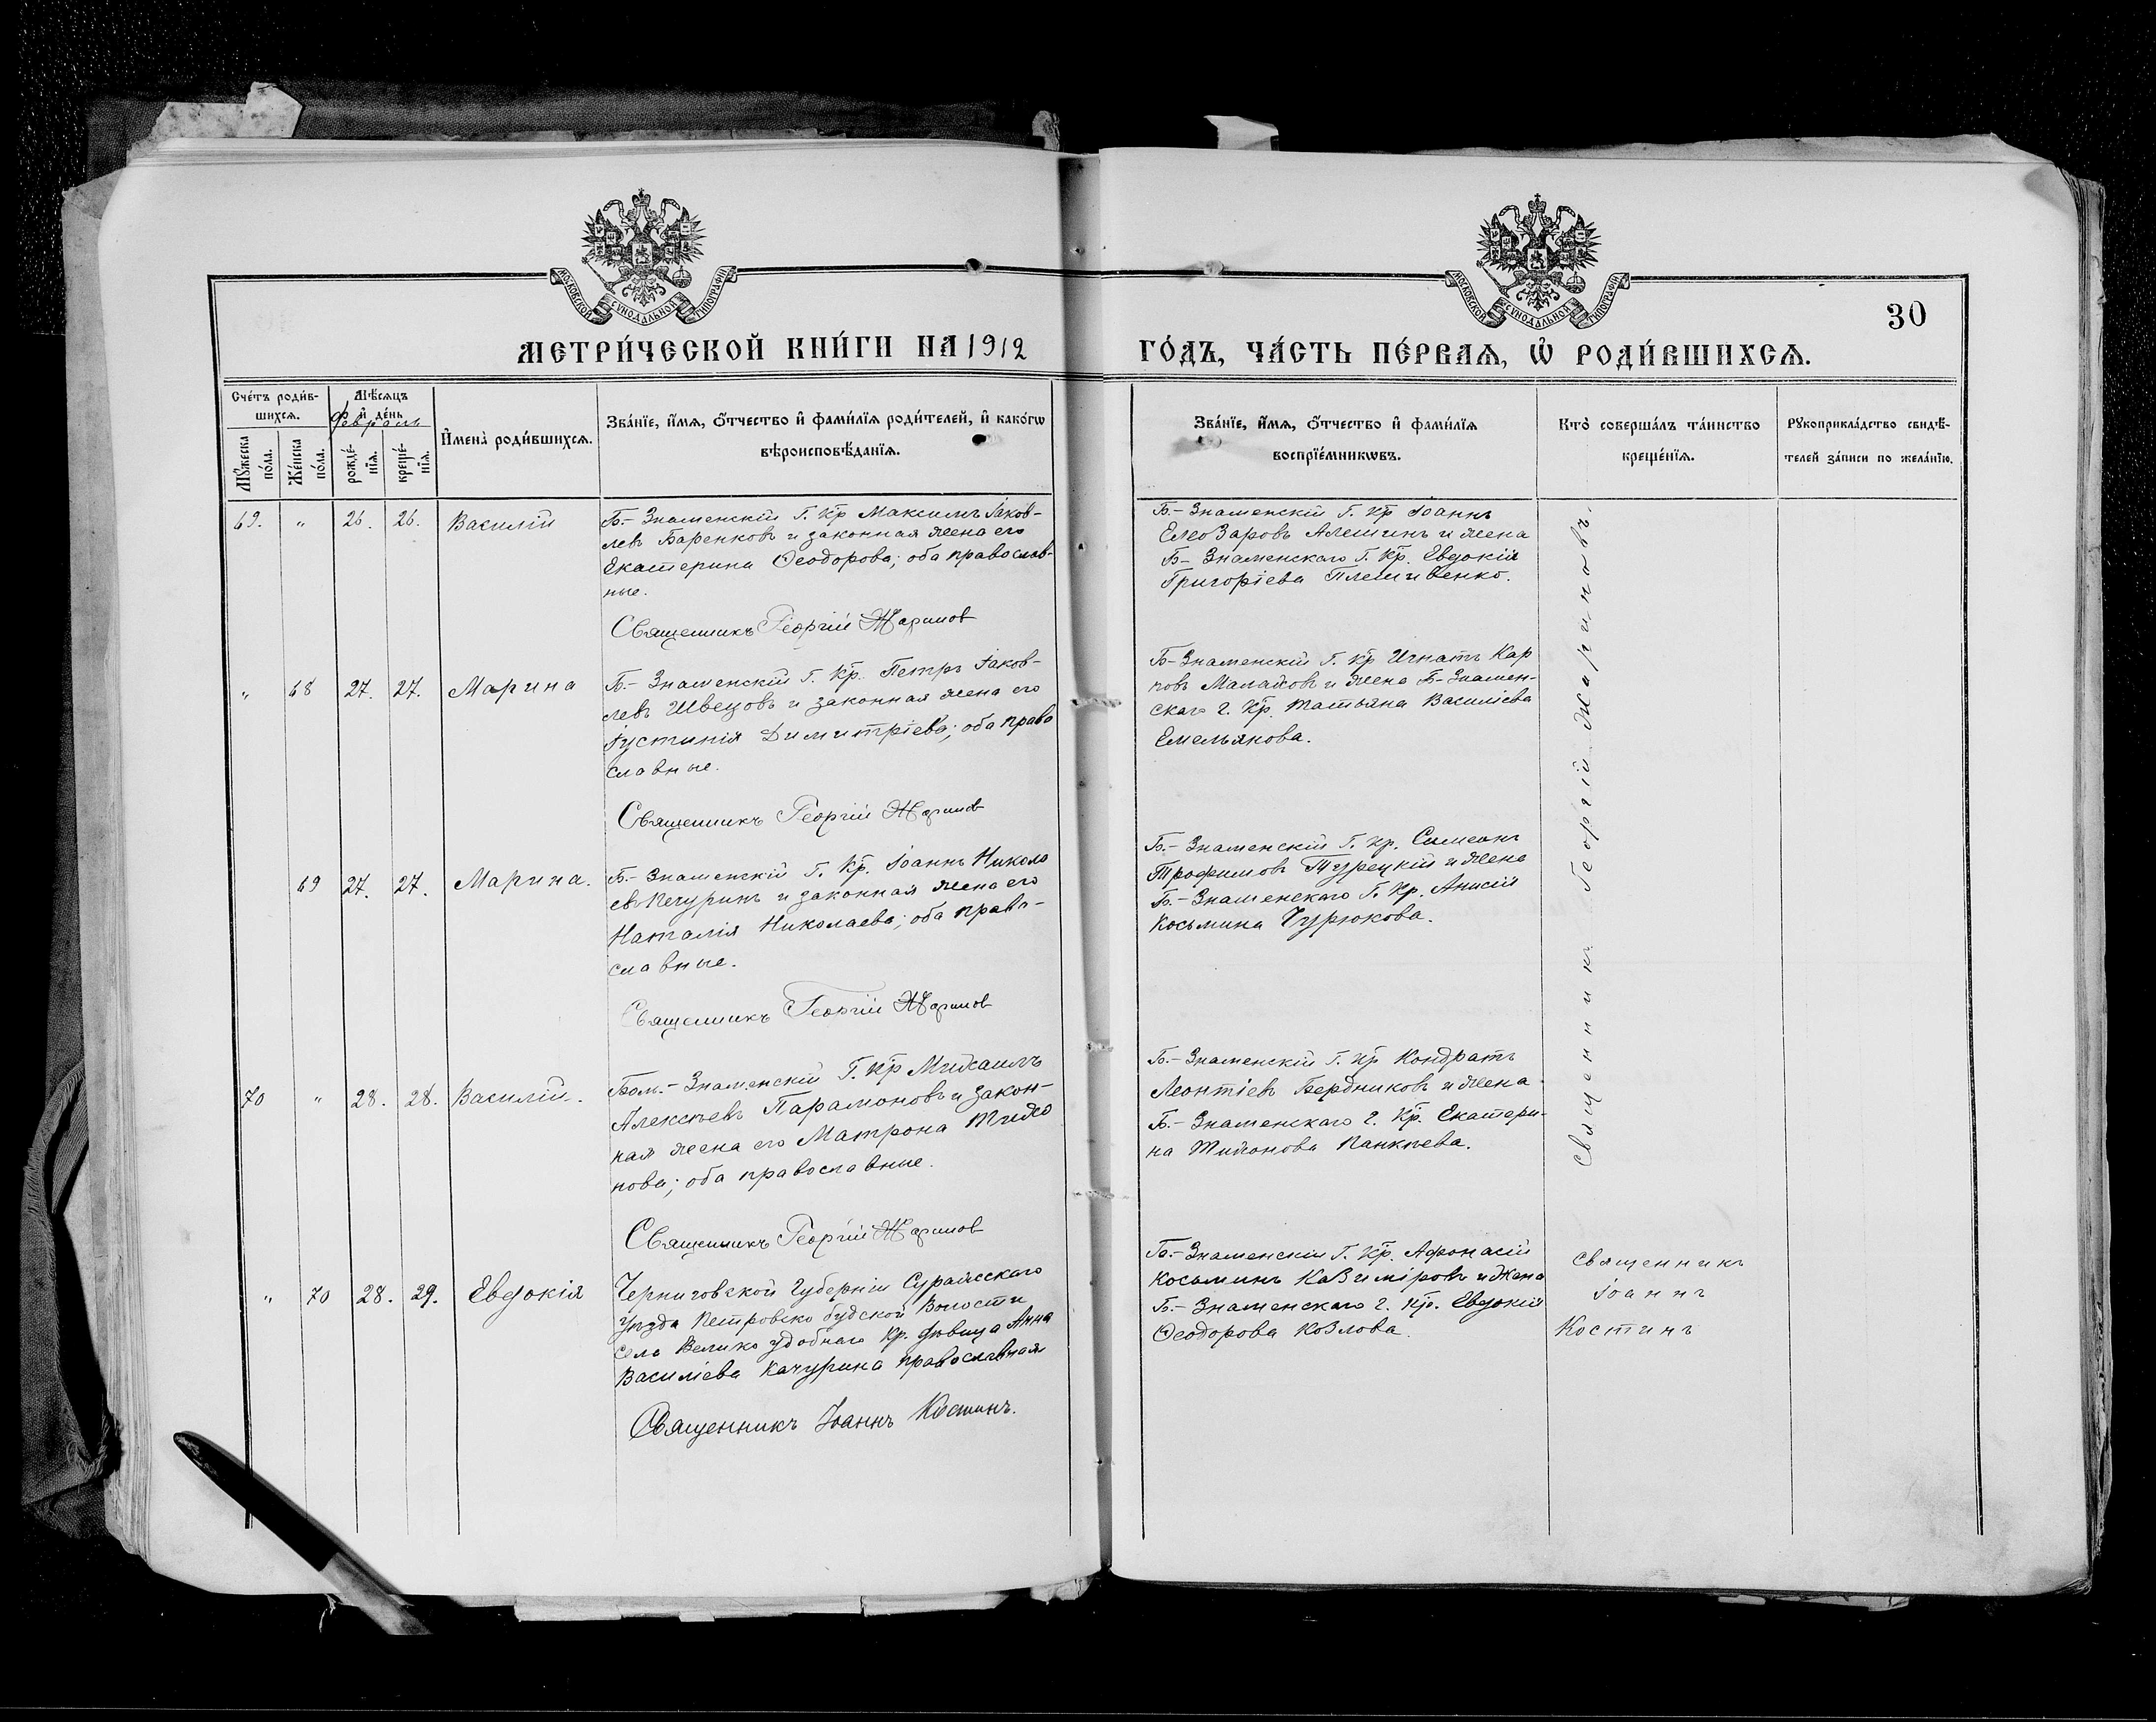 МОСКОВСКОЙ СѴНОДАЛЬНОЙ ТИПОГРАФІИ
МОСКОВСКОЙ СѴНОДАЛЬНОЙ ТИПОГРАФІИ
30
МЕТРИ́ЧЕСКОЙ КНИ́ГИ НА 1912
ГО́ДЪ, ЧА́СТЬ ПЕ́РВАѦ, Ѡ҆ РОДИ́ВШИХСѦ.
Сче́тъ роди́в-
шихсѧ.
Мꙋ́жеска по́ла.
Же́нска по́ла.
Мѣ́сѧцъ
и҆ де́нь
Февраль
рожде́-
нїѧ.
креще́-
нїѧ.
И҆мена̀ роди́вшихсѧ.
Зва́нїе, и҆́мѧ, ѻ҆́тчество и҆ фами́лїѧ роди́телей, и҆ како́гѡ
вѣроисповѣ́данїѧ.
Зва́нїе, и҆́мѧ, ѻ҆́тчество и҆ фами́лїѧ
воспрїе́мникѡвъ.
Кто̀ соверша́лъ та́инство
креще́нїѧ.
Рꙋкоприкла́дство свидѣ́-
телей за́писи по жела́нїю.
69. " 26. 26. Василій
Б.- Знаменскій Г. Кр Максимъ Іаков-
левъ Баренковъ и законная жена его
Екатерина Ѳеодорова; оба православ-
ные.
Священникъ Георгій Жаринов
Б.- Знаменскій Г. Кр Іоаннъ
Елеозаровъ Алешинъ и жена
Б- Знаменскаго Г. Кр. Евдокія
Григоріева Плешивенко.
" 68 27. 27. Марина
Б.- Знаменскій Г. Кр. Петръ Іаков-
левъ Швецовъ и законная жена его
Іустинія Димитріева; оба право
славные.
Священникъ Георгій Жаринов
Б- Знаменскій Г. Кр Игнатъ Кар
повъ Малаховъ и жена Б- Знамен-
скаго г. Кр. Татьяна Василіева
Емельянова.
69 27. 27. Марина.
Б.- Знаменскій Г. Кр. Іоаннъ Никола
евъ Печуринъ и законная жена его
Наталія Николаева; оба право-
славные.
Священникъ Георгій Жаринов
Б.- Знаменскій Г. Кр. Симеонъ
Трофимовъ Турецкій и жена
Б.- Знаменскаго Г. Кр. Анисія
Косьмина Чурюкова.
70 " 28. 28. Василій.
Бол.- Знаменскій Г. Кр Михаилъ
Алексѣевъ Парамоновъ и закон-
ная жена его Матрона Тихо
нова; оба православные.
Священникъ Георгій Жаринов
Б.- Знаменскій Г. Кр Кондратъ
Леонтіевъ Бердниковъ и жена
Б.- Знаменскаго г. Кр. Екатери-
на Тихонова Панкѣева.
Священникъ Георгій Жариновъ.
" 70 28. 29. Евдокія
Черниговской Губерніи Суражскаго
Уѣзда Петровско будской Волости
села Велико удобнаго Кр. дѣвица Анна
Василіева Качурина православная
Священникъ Іоаннъ Костинъ.
Б.- Знаменскій Г. Кр. Афонасій
Косьминъ Казиміровъ и жена
Б.- Знаменскаго г. Кр. Евдокія
Ѳеодорова Козлова.
Священникъ
Іоаннъ
Костинъ